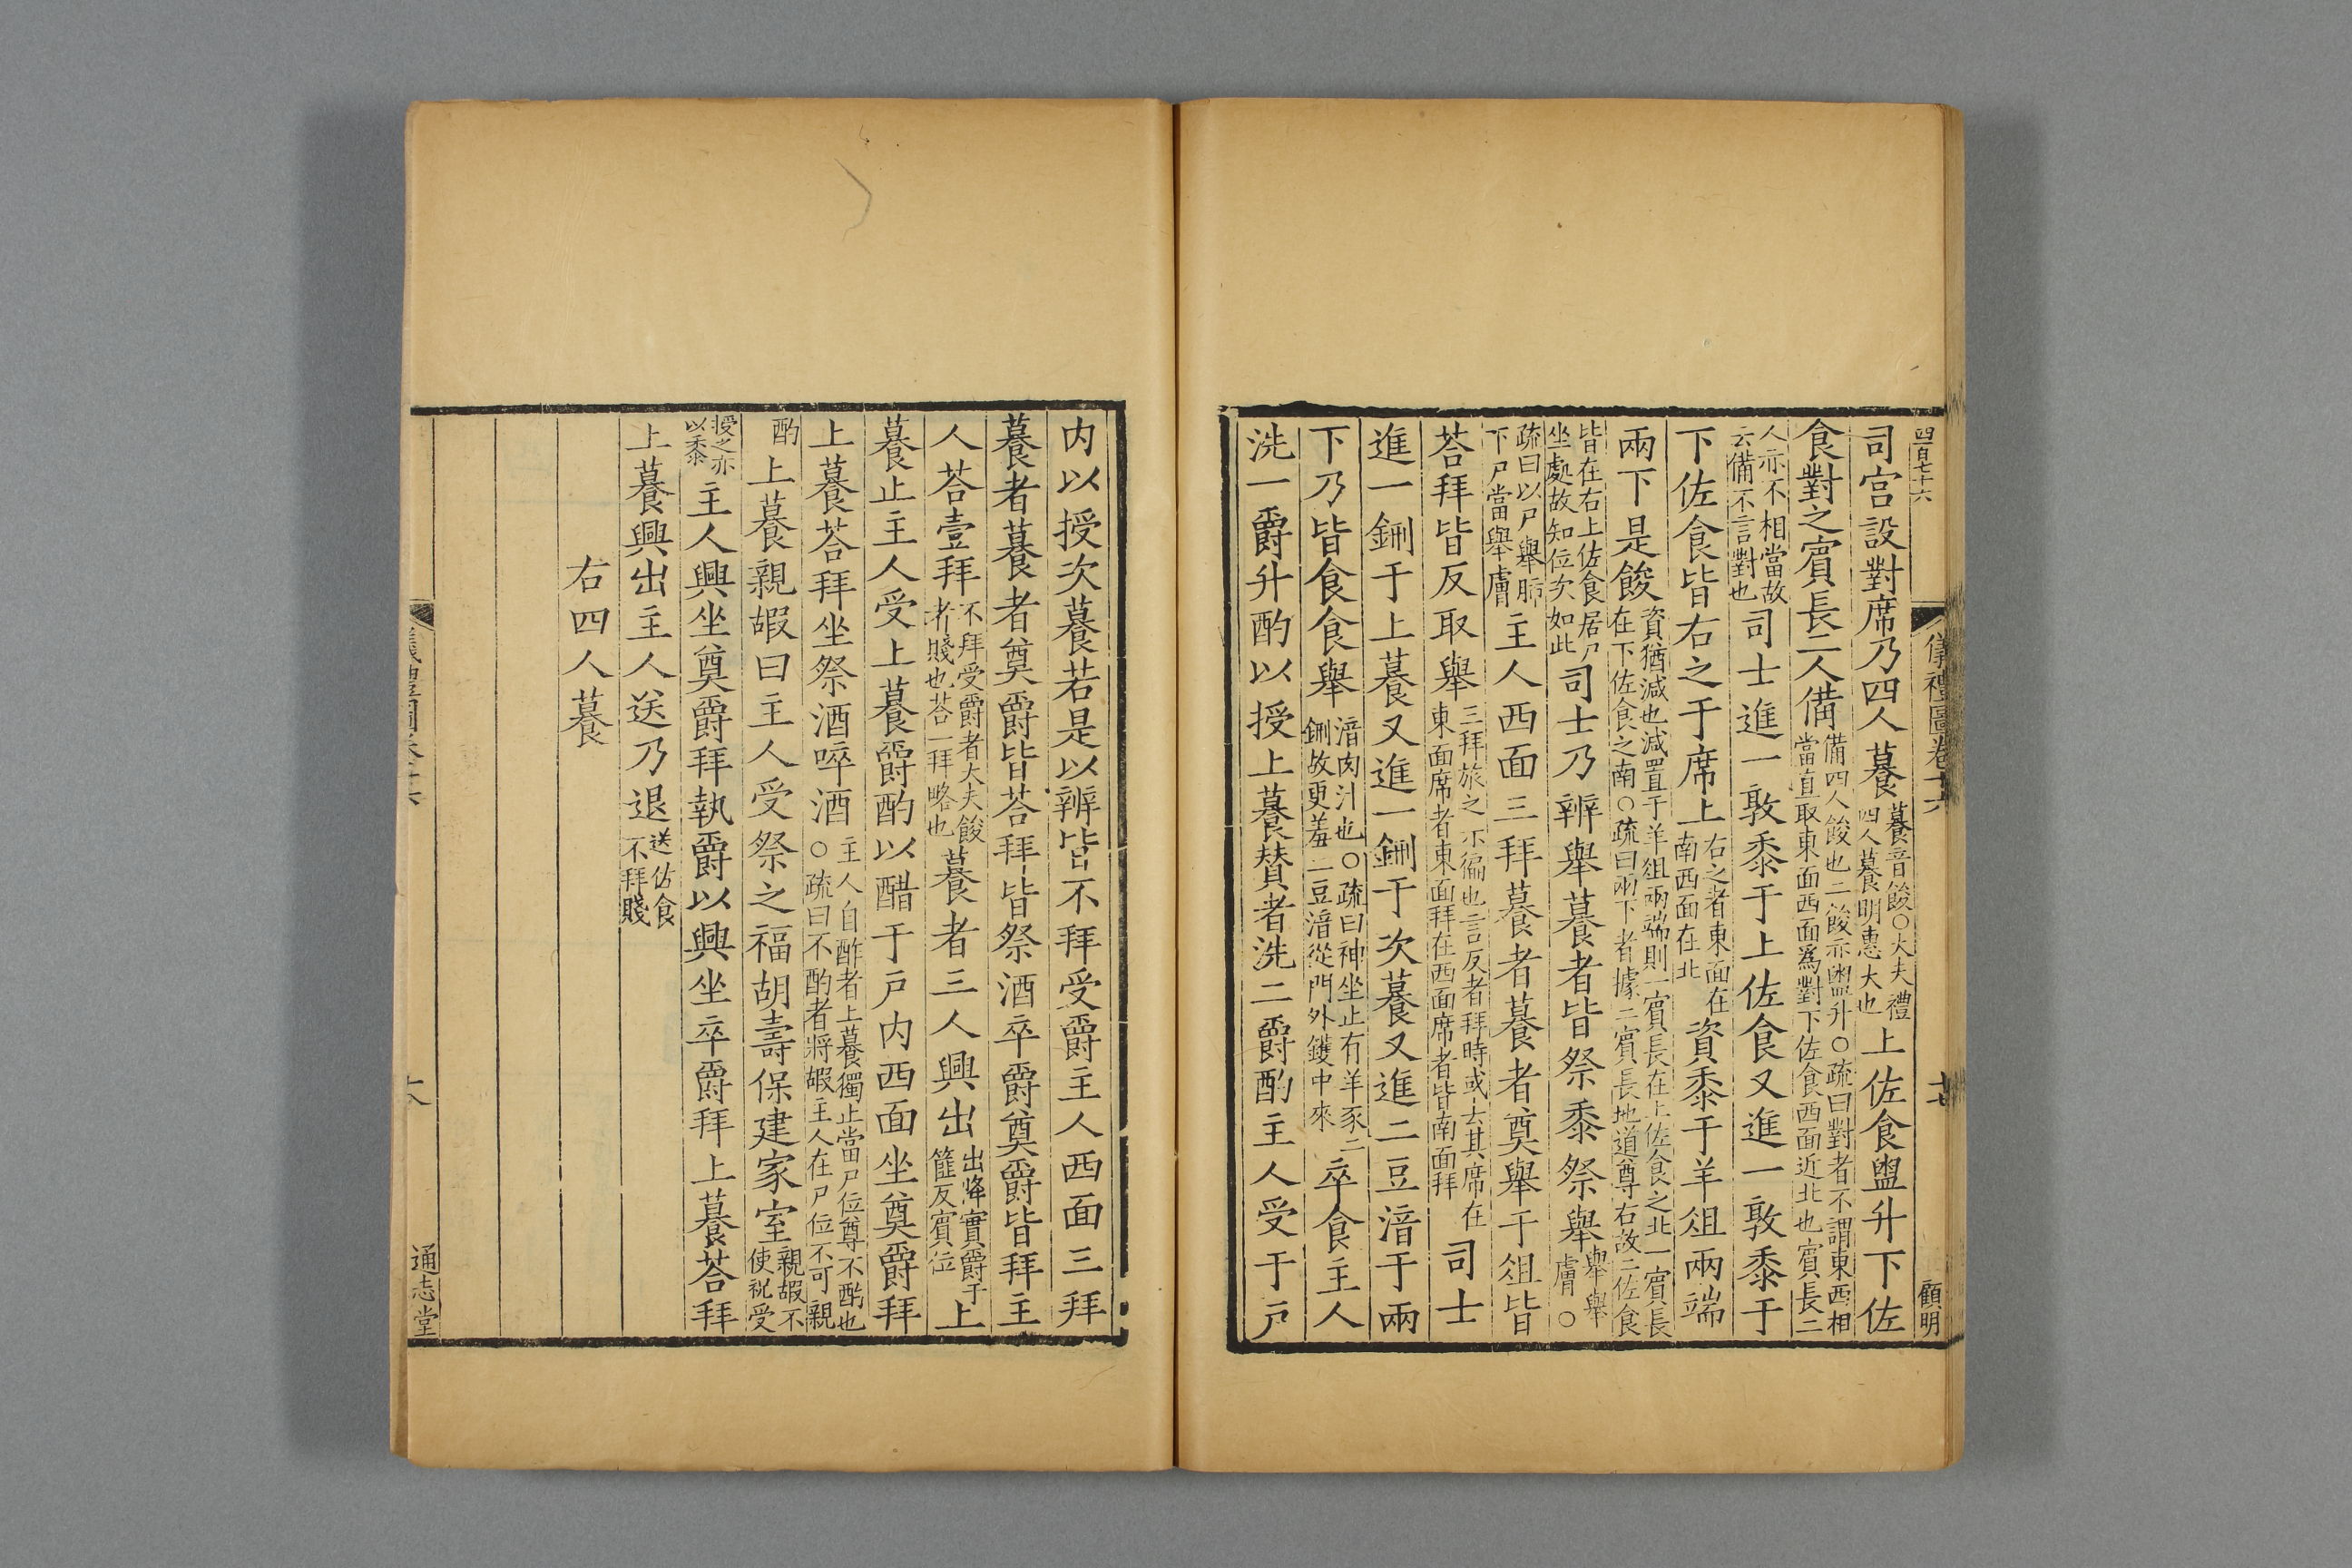 四百七十六 儀禮圖卷十六 十七 顧明
司宮設對席乃四人䭆䭆音餕○大夫禮四人䭆明惠大也上佐食盥升下佐
食對之賓長二人備備四人餕也二餕亦盥升○疏曰對者不謂東西相當直取東面西面爲對下佐食西面近北也賓長二
人亦不相當故云備不言對也司士進一敦黍于上佐食又進一敦黍于
下佐食皆右之于席上右之者東面在南西面在北資黍于羊俎兩端
兩下是餕資猶減也減置于羊俎兩端則一賓長在上佐食之北一賓長在下佐食之南○疏曰兩下者據二賓長地道尊右故二佐食
皆在右上佐食居尸坐處故知位次如此司士乃辨舉䭆者皆祭黍祭舉舉舉膚○
疏曰以尸舉肺下尸當舉膚主人西面三拜䭆者䭆者奠舉于俎皆
荅拜皆反取舉三拜旅之示徧也言反者拜時或去其席在東面席者東面拜在西面席者皆南面拜司士
進一鉶于上䭆又進一鉶于次䭆又進二豆湆于兩
下乃皆食食舉湆肉汁也○疏曰神坐止有羊豕二鉶故更羞二豆湆從門外鑊中來卒食主人
洗一爵升酌以授上䭆贊者洗二爵酌主人受于戶
內以授次䭆若是以辨皆不拜受爵主人西面三拜
䭆者䭆者奠爵皆荅拜皆祭酒卒爵奠爵皆拜主
人荅壹拜不拜受爵者大夫餕者賤也荅一拜略也䭆者三人興出出降實爵于篚反賓位上
䭆止主人受上䭆爵酌以醋于戶內西面坐奠爵拜
上䭆荅拜坐祭酒啐酒主人自酢者上䭆獨止當尸位尊不酌也○疏曰不酌者將嘏主人在尸位不可親
酌上䭆親嘏曰主人受祭之福胡壽保建家室親嘏不使祝受
授之亦以黍主人興坐奠爵拜執爵以興坐卒爵拜上䭆荅拜
上䭆興出主人送乃退送佐食不拜賤
右四人䭆
通志堂